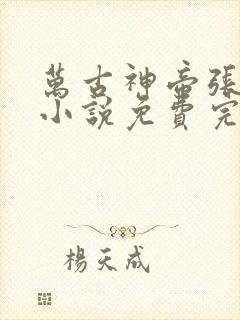 萬古神帝張
小說免費完
楊天成